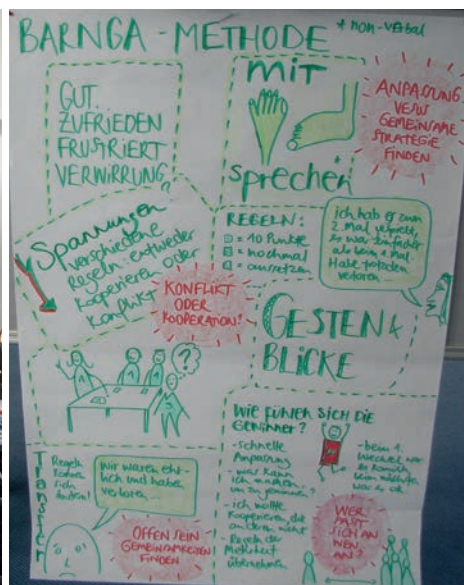 BARNGA - METHODE
+ non-verbal
GUT
ZUFRIEDEN
FRUSTRIERT
VERWIRRUNG
mit
sprechen
ANPASSUNG
VERSUS
GEMEINSAME
STRATEGIE
FINDEN
Spannungen
verschiedene
Regeln - entweder
kooperieren oder
Konflikt
KONFLIKT
ODER
KOOPERATION!
REGELN:
= 10 Punkte
= nochmal
= aussetzen
ich hab es zum
2. Mal gespielt,
es war einfacher
als beim 1. Mal.
Habe trotzdem
verloren...
GESTEN &
BLICKE
?
Transfer
Regeln
können
sich
ändern!
Wir waren ehr-
lich und haben
verloren...
OFFEN SEIN
GEMEINSAMKEITEN
FINDEN
WIE FÜHLEN SICH DIE
GEWINNER?
- schnelle
Anpassung
- was kann
ich machen,
um zu gewinnen?
- ich wollte
kooperieren, die
anderen nicht
- Regeln der
Mehrheit
übernehmen
- beim 1.
Wechsel war
es komisch
beim nächsten
war es ok
WER
PASST
SICH AN
WEN
AN?